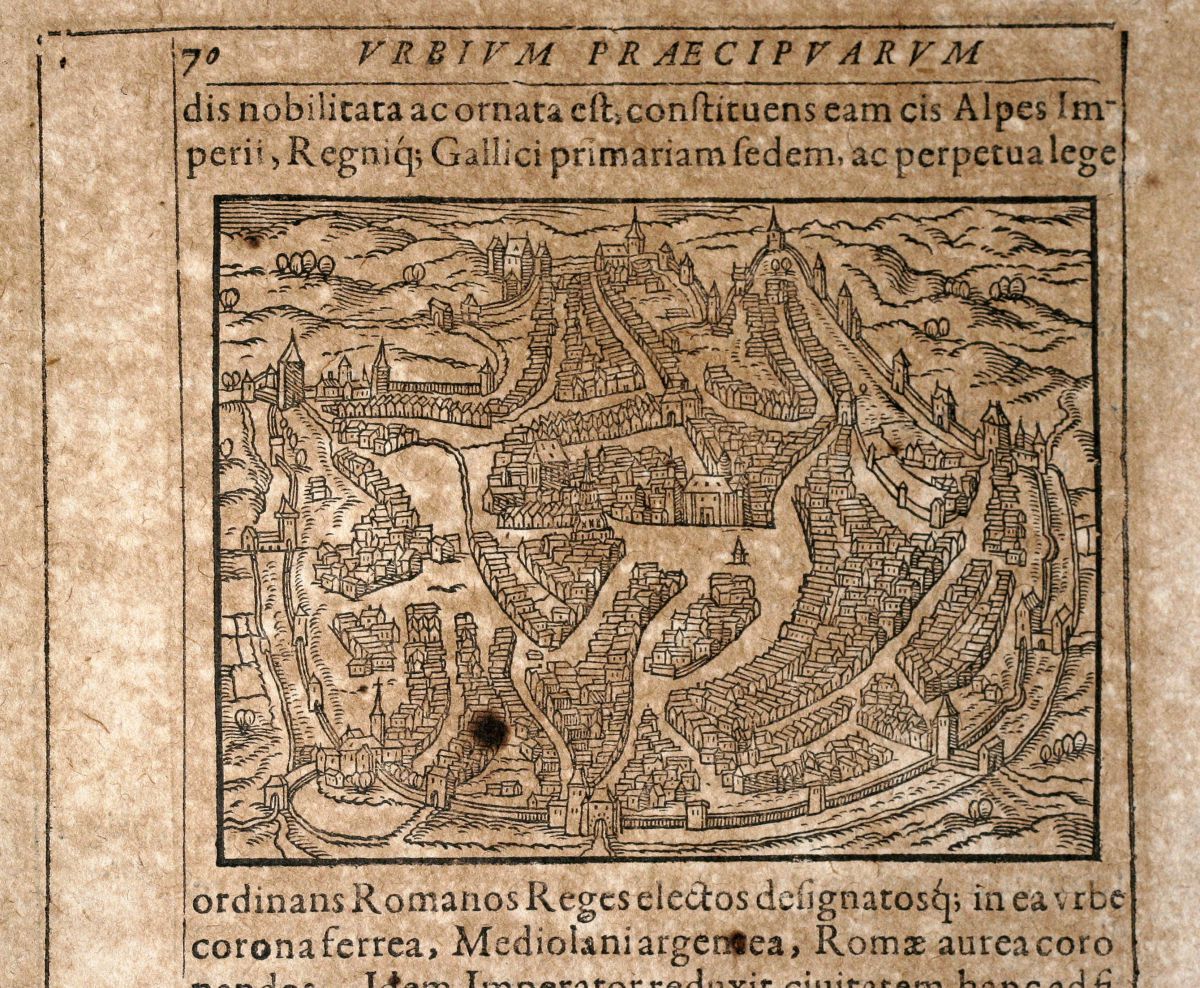 70 VRBIVM PRAECIPVARVM
dis nobilitata ac ornata eſt, conſtituens eam cis Alpes Im-
perii, Regniq́; Gallici primariam ſedem, ac perpetua lege
ordinans Romanos Reges electos deſignatosq́; in ea vrbe
corona ferrea, Mediolani argentea, Romæ aurea coro
nandos. Idem Imperator reduxit ciuitatem hanc ad fi